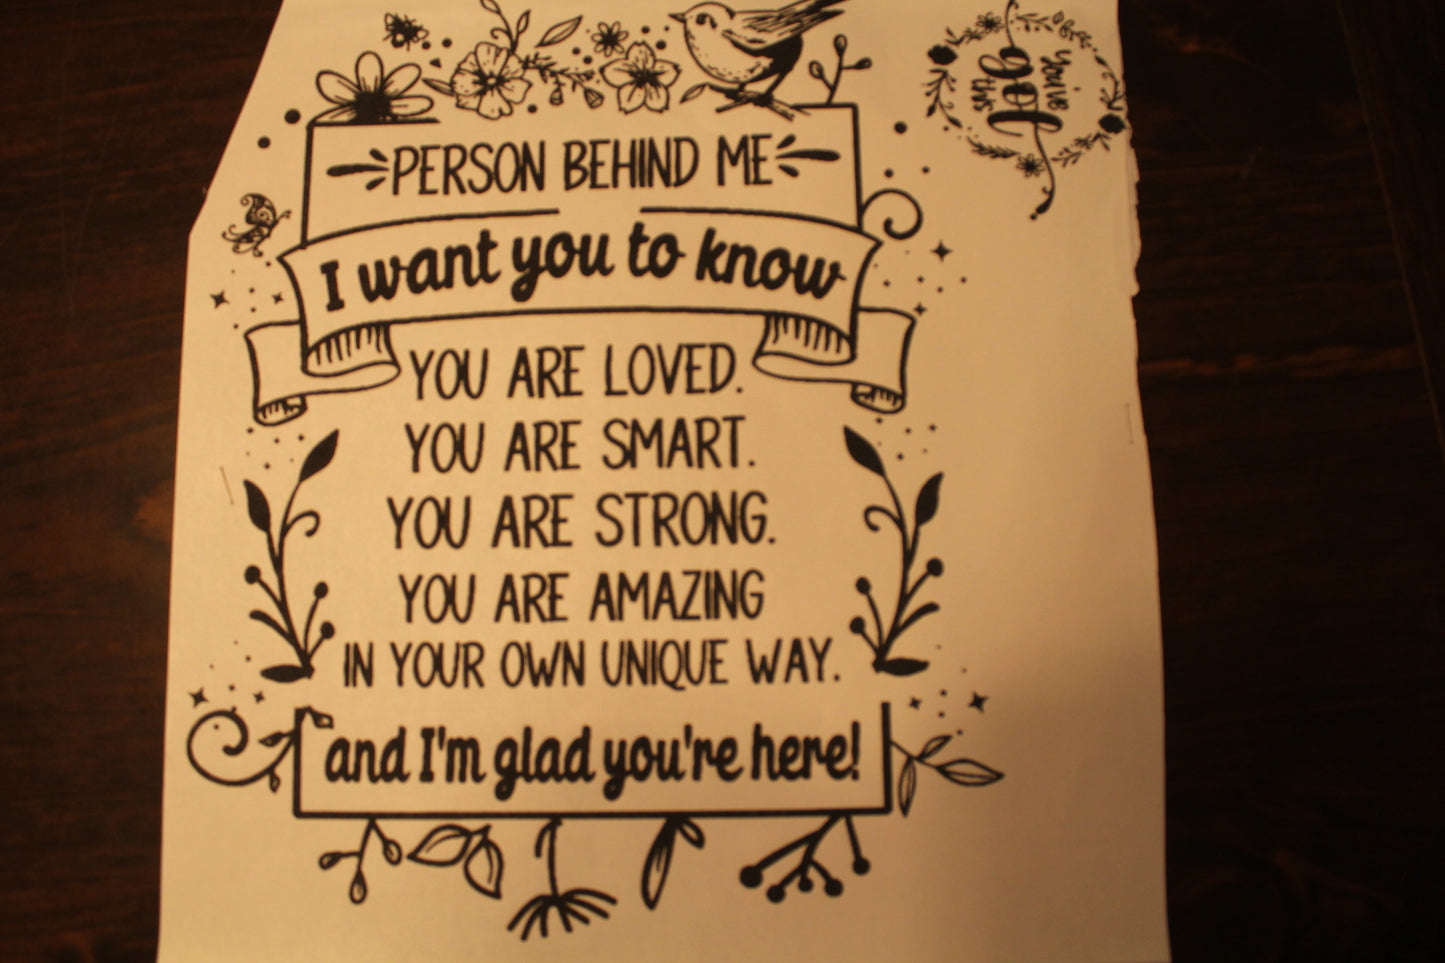 PERSON BEHIND ME
I want you to know
YOU ARE LOVED.
YOU ARE SMART.
YOU ARE STRONG.
YOU ARE AMAZING
IN YOUR OWN UNIQUE WAY.
and I'm glad you're here!
you've
got
this